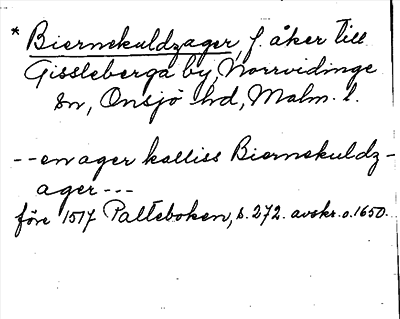 * Biernekuldzager, f. åker till
Gissleberga by, Norrvidinge
sn, Onsjö hd, Malm. l.
-- en ager kalliss Biernekuldz-
ager ---
före 1517 Palteboken, s. 272. avskr. o. 1650.